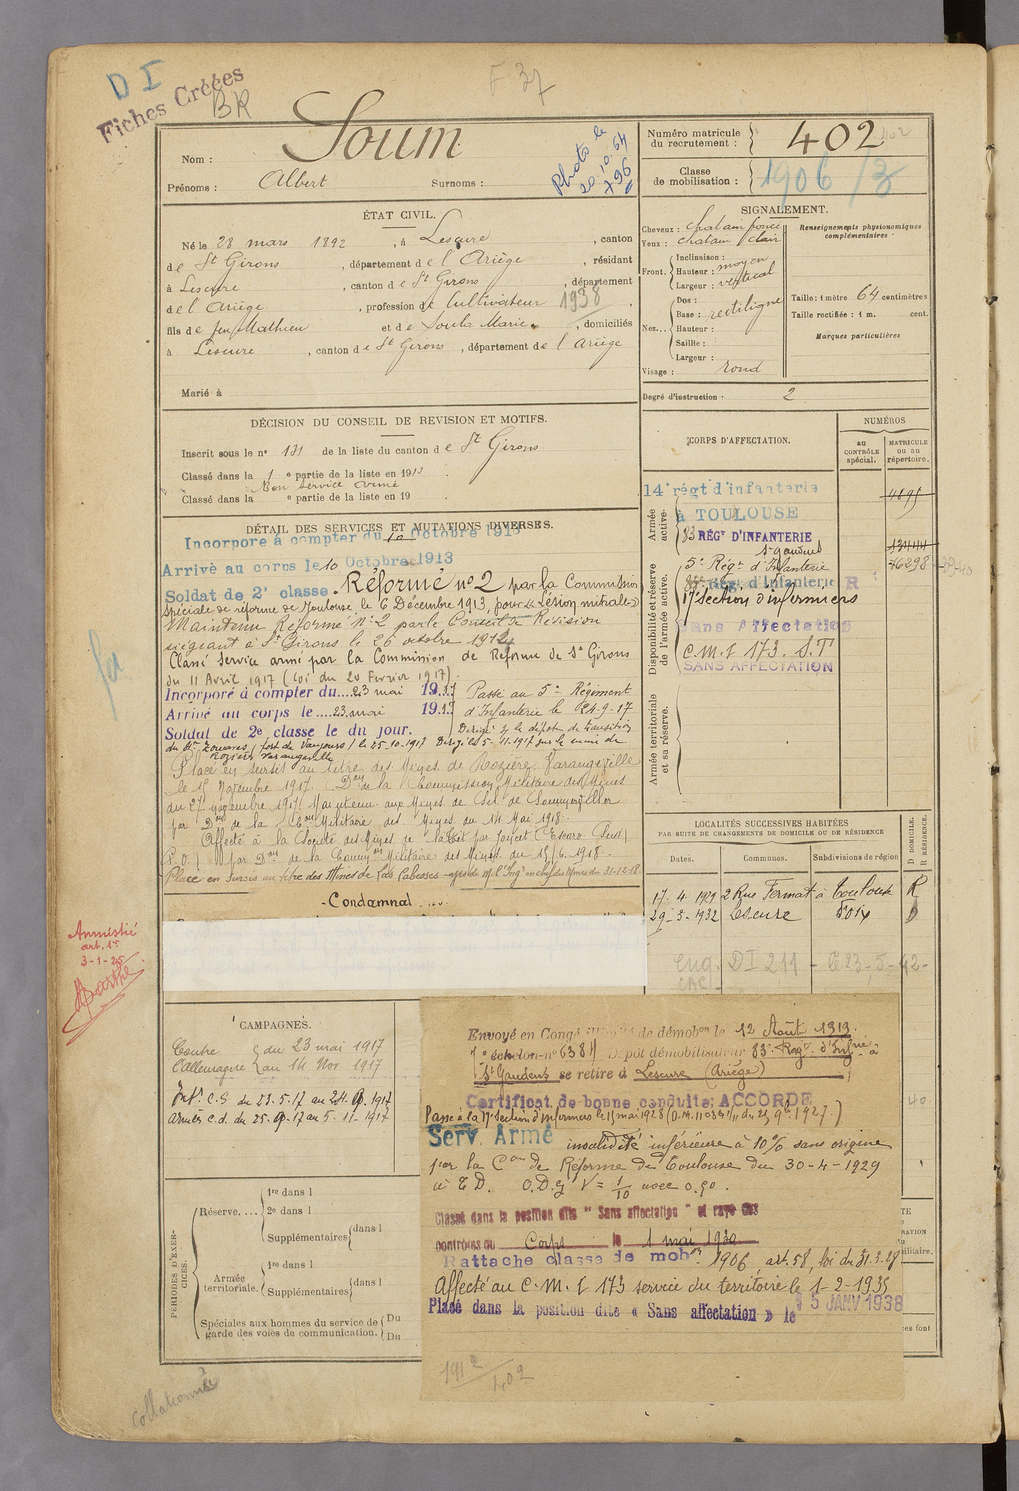 D I
Fiches Créées
BR
F 37
Nom : Soum
Prénoms : Albert Surnoms :
Photo le
20.10.64
796
Numéro matricule
du recrutement : 402
402
Classe
de mobilisation : 1906 /3
ÉTAT CIVIL.
Né le 28 mars 1892, à Lescure, canton
de St Girons, département de l'Ariège, résidant
à Lescure, canton de St Girons, département
de l'Ariège, profession de Cultivateur 1938
fils de feu Mathieu et de Soula Marie, domiciliés
à Lescure, canton de St Girons, département de l'Ariège
Marié à
SIGNALEMENT.
Cheveux : chatain foncé
Yeux : chatain clair
Front. Inclinaison :
Hauteur : moyen
Largeur : vertical
Nez... Dos :
Base : rectiligne
Hauteur :
Saillie :
Largeur :
Visage : rond
Renseignements physionomiques
complémentaires.
Taille : 1 mètre 64 centimètres
Taille rectifiée : 1 m. cent.
Marques particulières
Degré d'instruction : 2
DÉCISION DU CONSEIL DE REVISION ET MOTIFS.
Inscrit sous le n° 131 de la liste du canton de St Girons
Classé dans la 1e partie de la liste en 1913
Bon service armé
Classé dans la e partie de la liste en 19
DÉTAIL DES SERVICES ET MUTATIONS DIVERSES.
Incorporé à compter du 10 Octobre 1913
Arrivé au corps le 10 Octobre 1913
Soldat de 2e classe. Réformé n° 2 par la Commission
spéciale de réforme de Toulouse le 6 Décembre 1913, pour « Lésion mitrale »
Maintenu Réformé N° 2 par le Conseil de Révision
siégeant à St Girons le 26 octobre 1914
Classé Service armé par la Commission de Réforme de St Girons
du 11 Avril 1917 (loi du 20 Février 1917).
Incorporé à compter du.... 23 mai 1917 Passé au 5e Régiment
Arrivé au corps le.... 23 mai 1917 d'Infanterie le 24-9-17
Soldat de 2e classe le dit jour. Dirigé s/ le dépôt de transition
du 4e Zouaves, fort de Vaujours, le 25.10.1917 Dirigé le 5-11-1917 sur le
Rozières Varangéville
Placé en sursis au titre des Mines de Rozières Varangéville
le 15 Novembre 1917. Don de la Commission Militaire des Mines
du 27 novembre 1917. Maintenu aux Mines de Sel de Sommerviller
par Don de la Con Militaire des Mines du 14 Mai 1918.
Affecté à la Société des Mines de
par Don de la Common Militaire des Mines du 15/6.1918.
Placé en sursis au titre des Mines de Las Cabesses
- Condamnal ....
Amnistié
art. 1er
3-1-25
CORPS D'AFFECTATION.
NUMÉROS
au
CONTRÔLE
spécial.
MATRICULE
ou au
répertoire.
Armée
active.
14e régt d'infanterie
à TOULOUSE
83 RÉGt D'INFANTERIE
St Gaudens
Disponibilité et réserve
de l'armée active.
5e Régt d'Infanterie
46298
Rég. d'Infanterie R
17e section d'infirmiers
Sans Affectation
C.M.I 173. S.T
SANS AFFECTATION
Armée territoriale
et sa réserve.
LOCALITÉS SUCCESSIVES HABITÉES
PAR SUITE DE CHANGEMENTS DE DOMICILE OU DE RÉSIDENCE
Dates. Communes. Subdivisions de région
D DOMICILE.
R RÉSIDENCE.
17. 4. 1929 2 Rue Fermat à Toulouse R
29-5-1932 Lescure Foix D
DI 211 - 623-5-42-
40
CAMPAGNES.
Contre l'Allemagne du 23 mai 1917
au 14 Nov 1917
Intr C.S du 23.5.17 au 24.9.1917
Armées c.d. du 25.9.17 au 5-11-1917
PÉRIODES D'EXERCICES.
Réserve.... 1re dans l
2e dans l
Supplémentaires dans l
Armée
territoriale. 1re dans l
Supplémentaires dans l
Spéciales aux hommes du service de
garde des voies de communication. Du
Du
Envoyé en Congé illimité de démobon le 12 Août 1919.
1e échelon-n° 6384 Dépôt démobilisateur 83e Régt d'Infie à
St Gaudens se retire à Lescure (Ariège)
Certificat de bonne conduite: ACCORDÉ
Passé à la 17e section d'infirmiers le 15 mai 1928
Serv. Armé invalidité inférieure à 10% sans origine
par la Con de Réforme de Toulouse du 30-4-1929
O.D.G V = 1/10 avec 0.90.
Classé dans la position dite " Sans affectation " et rayé des
controles du Corps le 1 mai 1930
Rattaché classe de mobon 1906, art. 58, loi du 31.3.28
Affecté au C.M.I 173 service du territoire le 1-2-1935
Placé dans la position dite « Sans affectation » le 15 JANV 1938
1912/402
Collationné